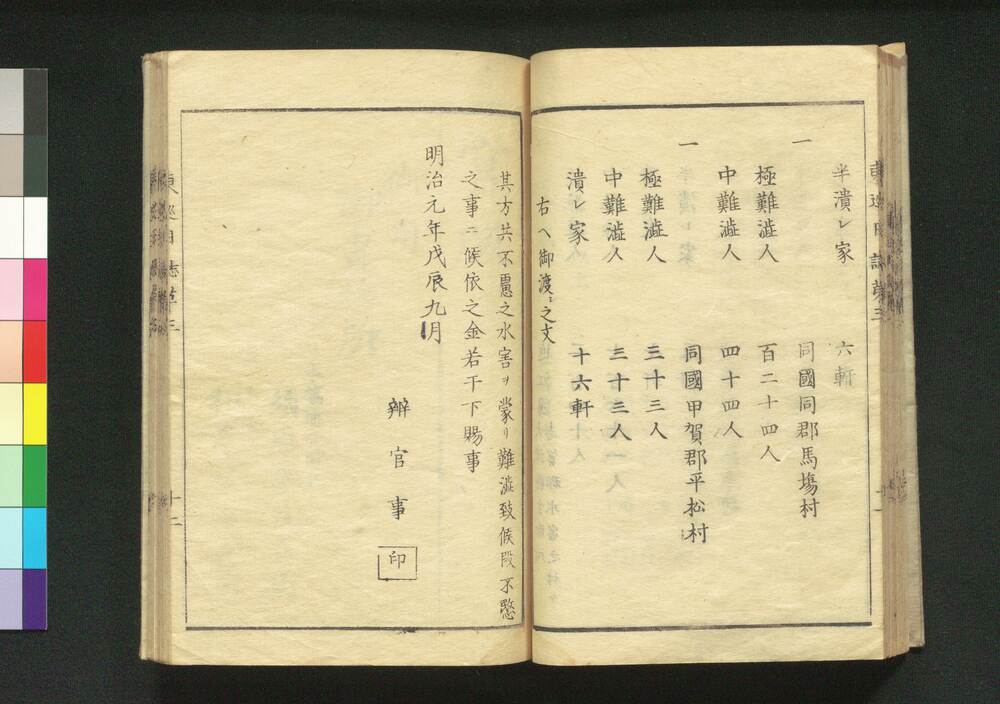 半潰レ家 六軒
一 同國同郡馬塲村
極難澁人 百二十四人
中難澁人 四十四人
一 同國甲賀郡平松村
極難澁人 三十三人
中難澁人 三十三人
潰レ家 十六軒
右ヘ御渡ニ之文
其方共不慮之水害ヲ蒙リ難澁致候段不愍
之事ニ候依之金若干下賜事
明治元年戊辰九月
辨官事 印
東巡日誌第三
十二